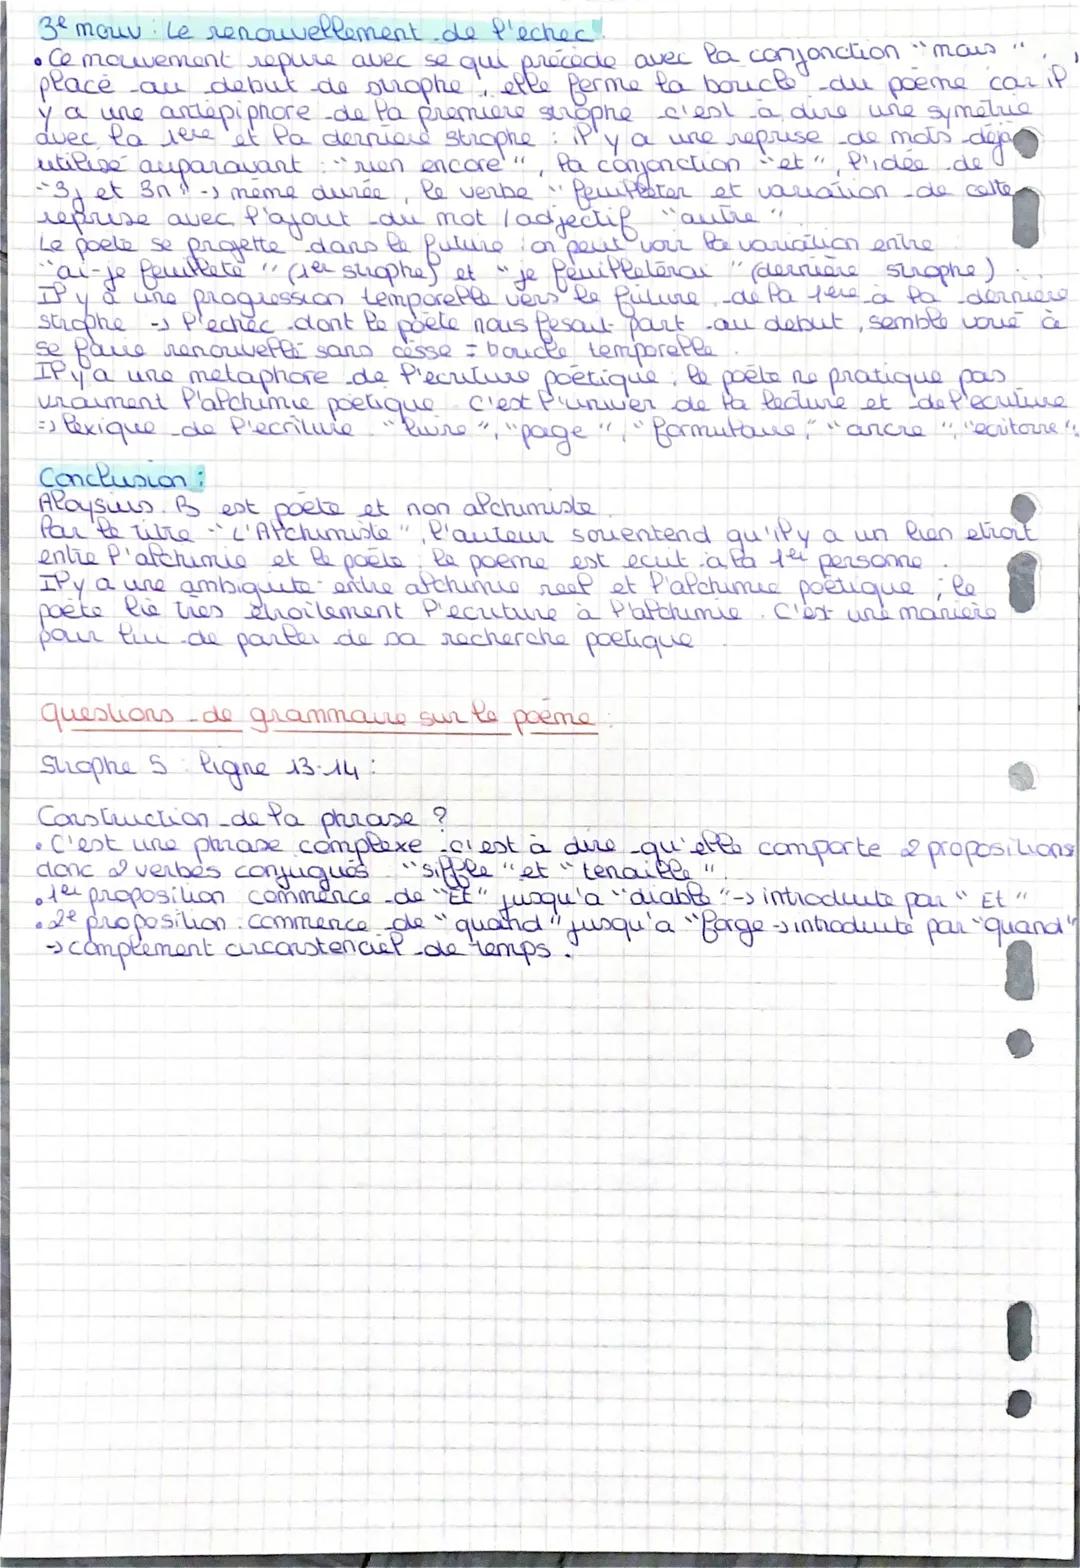 3e mouv : Le renouvellement de l'echec
• Ce mouvement repure avec se qui précède avec la conjonction "mais",
placé au debut de strophe, elle ferme la boucle du poème car il
y a une antépiphore de la première strophe c'est à dire une symétrie
avec la 1ere et la dernière strophe : il y a une reprise de mots déjà
utilisé auparavant : "rien encore", la conjonction "et", l'idée de
"3j et 3n" -> même durée, le verbe "feuilleter et variation de cette
reprise avec l'ajout du mot / adjectif "autre".
Le poete se projette dans le future : on peut voir la variation entre
"ai-je feuilleté" (1er strophe) et "je feuilleterai" (dernière strophe).
Il y a une progression temporelle vers le future de la 1ère à la dernière
strophe -> l'échec dont le poète nous fesait part au debut, semble voué à
se faire renouvellé sans cesse = boucle temporelle.
Il y a une metaphore de l'ecriture poétique, le poète ne pratique pas
vraiment l'alchimie poetique. C'est l'univer de la lecture et de l'ecriture
=> lexique de l'ecriture "livre", "page", "formulaire", "ancre", "ecritoire".
Conclusion :
Aloysius. B est poète et non alchimiste.
Par le titre "L'Alchimiste", l'auteur souentend qu'il y a un lien etroit
entre l'alchimie et le poète ; le poeme est ecrit à la 1er personne.
Il y a une ambiguite entre alchimie reel et l'alchimie poétique ; le
poète lie tres etroitement l'ecriture à l'alchimie. C'est une manière
pour lui de parler de sa recherche poetique
questions de grammaire sur le poème :
Strophe 5 : ligne 13-14 :
Construction de la phrase ?
• C'est une phrase complexe c'est à dire qu'elle comporte 2 propositions
donc 2 verbes conjugués "siffle" et "tenaille".
• 1er proposition commence de "Et" jusqu'a "diable" -> introduite par "Et"
• 2e proposition commence de "quand" jusqu'a "forge -> introduite par "quand"
-> complement circonstenciel de temps.